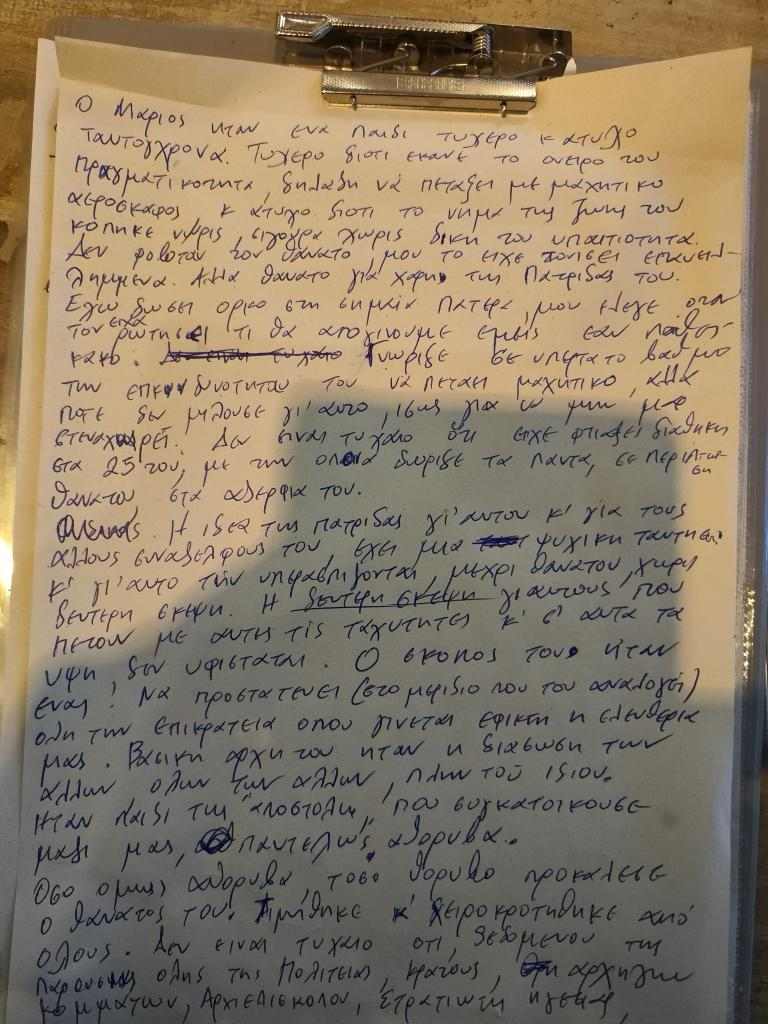 Ο Μαριος ηταν ενα παιδι τυχερο κ ατυχο
ταυτοχρονα. Τυχερο διοτι εκανε το ονειρο του
πραγματικοτητα, δηλαδη νά πεταξει με μαχητικο
αεροσκαφος κ ατυχο διοτι το νημα της ζωης του
κοπηκε νωρις, σιγουρα χωρις δικη του υπαιτιοτητα.
Δεν φοβοταν τον θανατο, μου το ειχε τονισει επανει-
λημμενα. Αλλα θανατο για χαρη της Πατριδας του.
Εχω δωσει ορκο στη σημαία Πατερα, μου ελεγε οταν
τον ειχα ρωτησει τι θα απογινουμε εμεις εαν παθεις
κακο. Γνωριζε σε υπερτατο βαθμο
την επικινδυνοτητα του νά πεταει μαχητικο, αλλα
ποτε δεν μιλουσε γι'αυτο, ισως για να μην μας
στεναχωρει. Δεν ειναι τυχαιο ότι ειχε φτιαξει διαθηκη
στα 25 του, με την οποια δωριζε τα παντα, σε περιπτωση
θανατου, στα αδερφια του.
Η ιδεα της πατριδας γι'αυτον κ' για τους
αλλους συναδελφους του, εχει μια ψυχικη ταυτηση
κ' γι'αυτο την υπερασπιζονται μεχρι θανατου, χωρις
δευτερη σκεψη. Η δευτερη σκεψη γι αυτους που
πετουν με αυτες τίς ταχυτητες κ' σ' αυτα τα
υψη, δεν υφισταται. Ο σκοπος τους ηταν
ενας! Να προστατευει (στο μεριδιο που του αναλογει)
ολη την επικρατεια οπου γινεται εφικτη η ελευθερια
μας. Βασικη αρχη του ηταν η διασωση των
αλλων ολων των αλλων, πλην τού ιδιου.
Ηταν παιδι της "αποστολης", που συγκατοικουσε
μαζι μας, παντελως αθορυβα.
Οσο ομως αθορυβα, τοσο θορυβο προκαλεσε
ο θανατος του. Τιμηθηκε κ' χειροκροτηθηκε από
ολους. Δεν ειναι τυχαιο οτι, δεδομενου της
παρουσιας ολης της Πολιτειας, κρατους, αρχηγων
κομματων, Αρχιεπισκοπου, Στρατιωτικη ηγεσια,